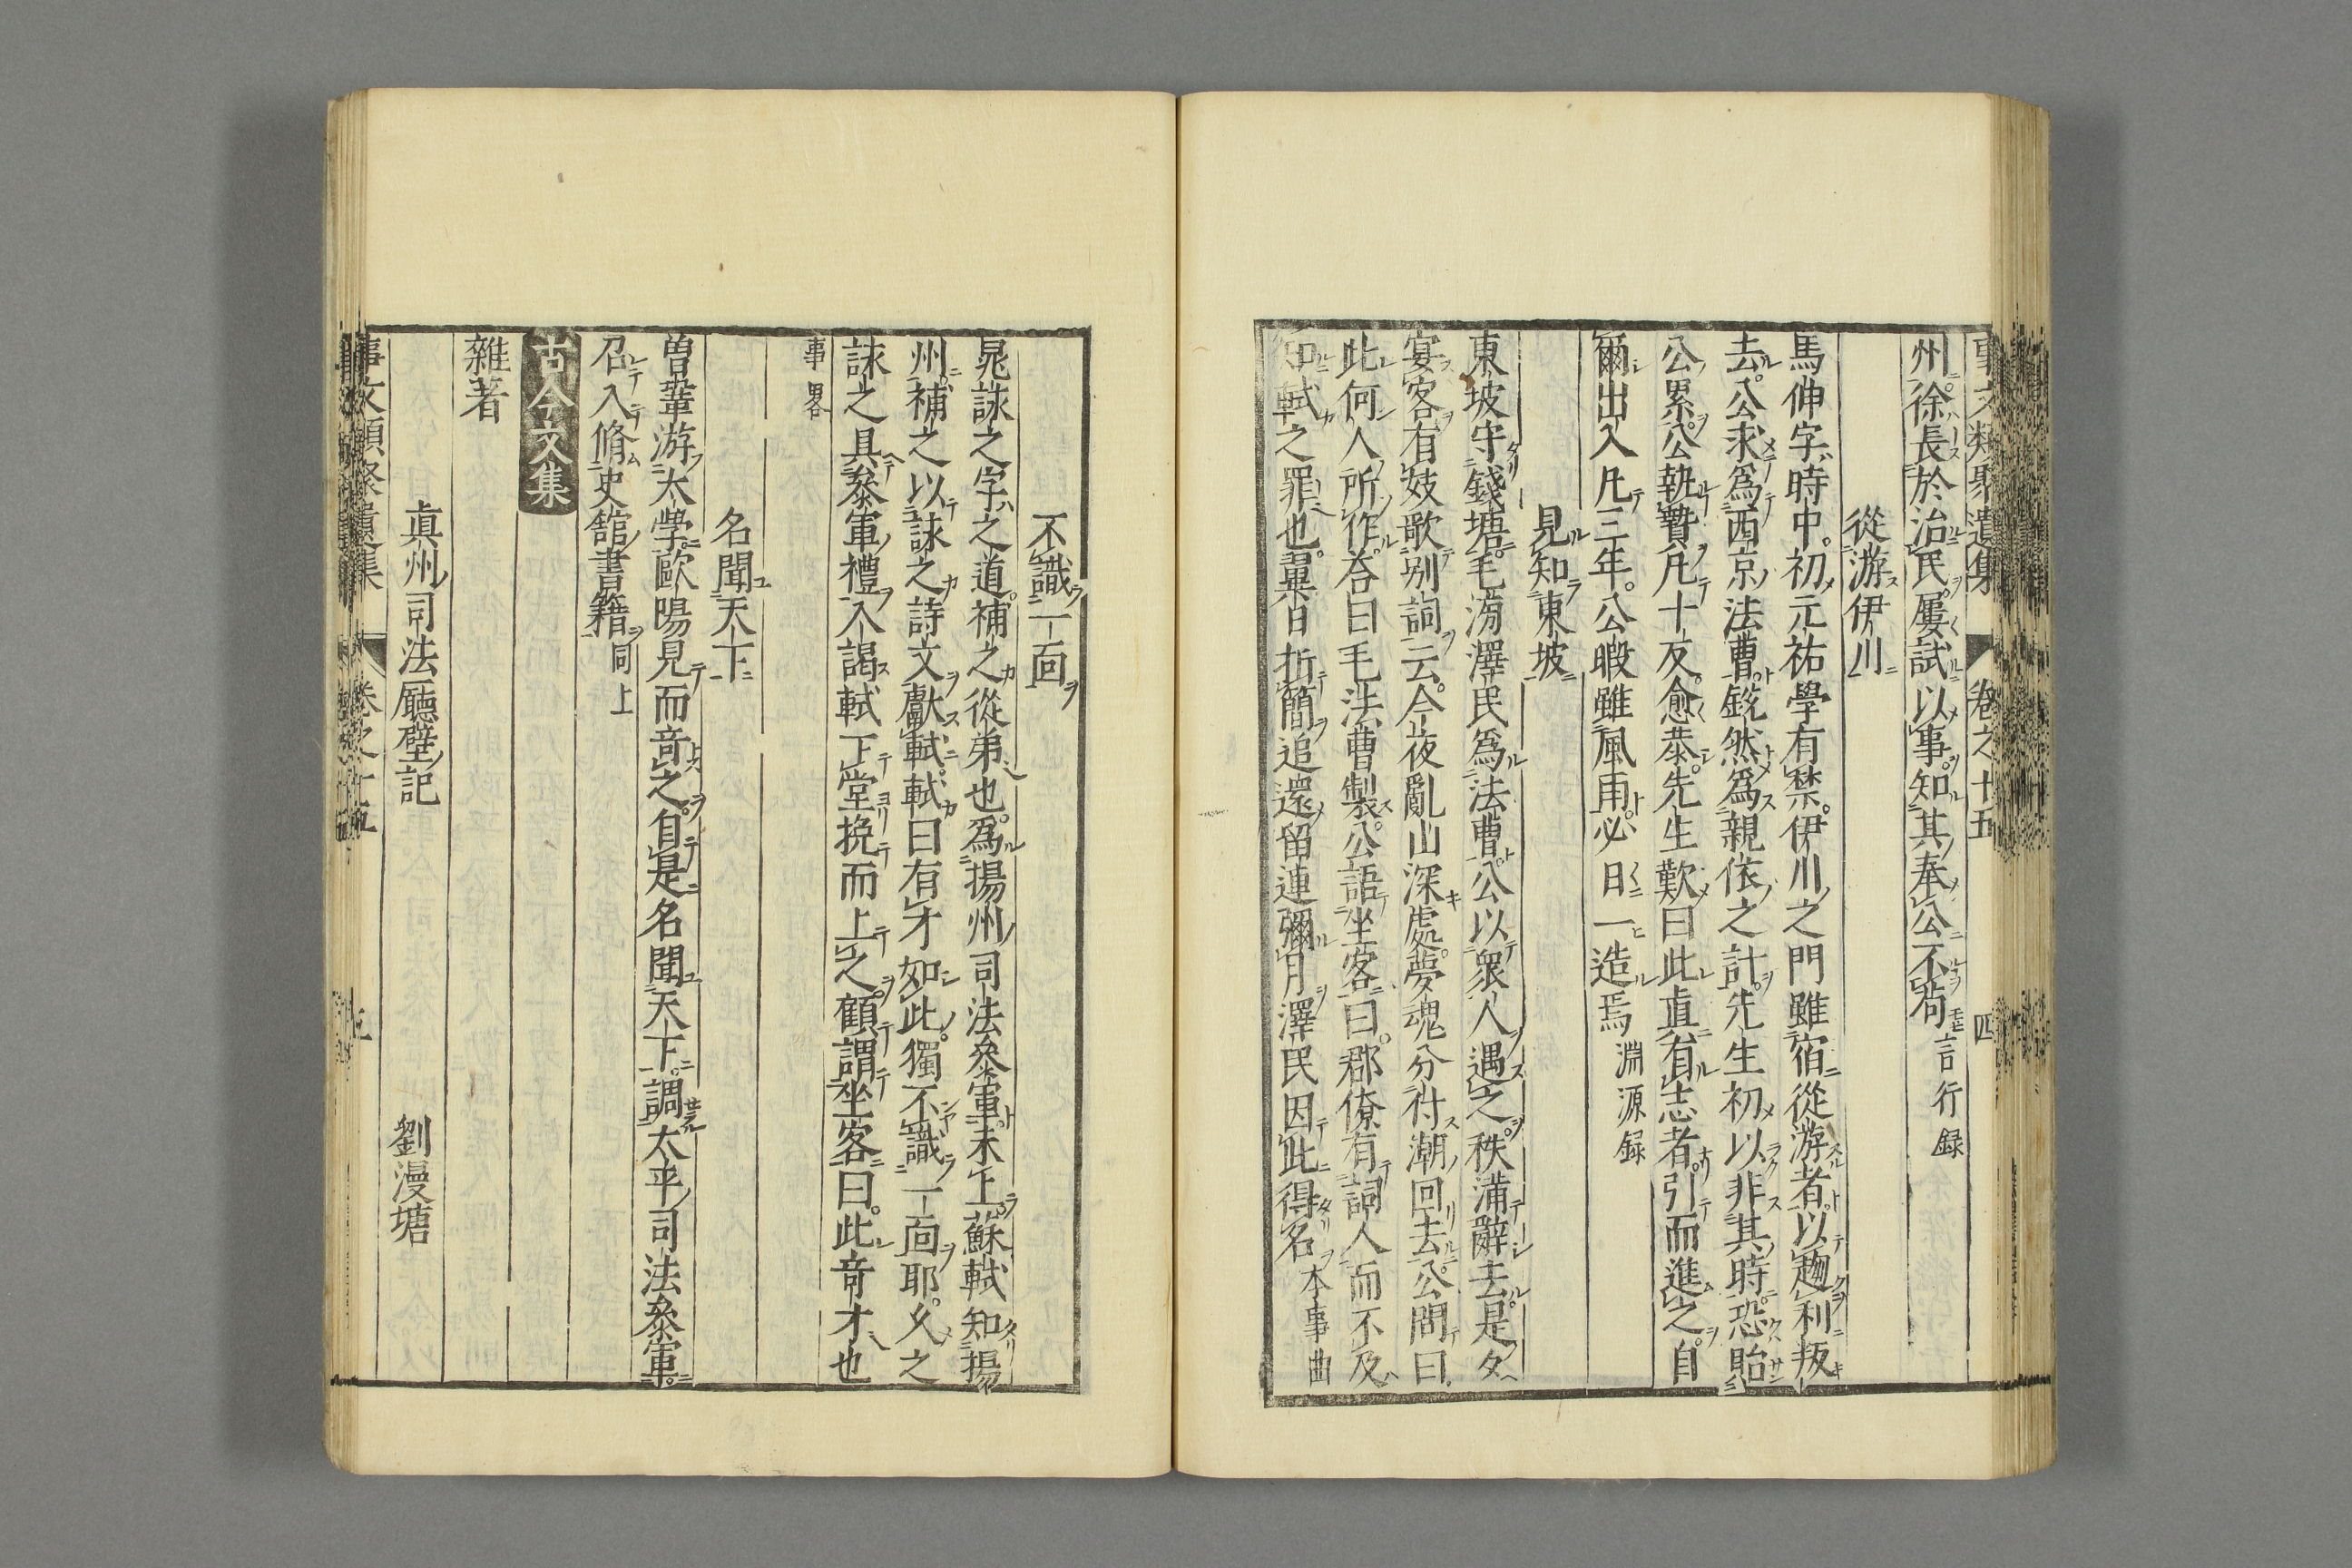 事文類聚遺集 卷之十五 四
州徐長於治民屢試以事知其奉公不苟言行録
從游伊川
馬伸字時中。初元祐學有禁。伊川之門雖宿從游者以趨利叛
去公求爲西京法曹銳然爲親依之計先生初以非其時恐貽
公累公執贄凡十反愈恭先生歎曰此眞有志者引而進之自
爾出入凡三年。公暇雖風雨必日一造焉淵源録
見知東坡
東坡守錢塘毛滂澤民爲法曹公以衆人遇之秩滿辭去是夕
宴客有妓歌别詞云今夜亂山深處夢魂分付潮回去公問曰
此何人所作荅曰毛法曹製公語坐客曰。郡僚有詞人而不及
知軾之罪也。翼日折簡追還留連彌月澤民因此得名本事曲
不識一面
晁詠之字之道。補之從弟也。爲揚州司法叅軍未上蘇軾知揚
州。補之以詠之詩文獻軾軾曰有才如此。獨不識一面耶。乂之
詠之具叅軍禮入謁軾下堂挽而上之顧謂坐客曰。此竒才也
事畧
名聞天下
曽鞏游太學歐陽見而竒之。自是名聞天下。調太平司法叅軍。
召入脩史館書籍同上
古今文集
雜著
眞州司法廳壁記 劉漫塘
事文類聚遺集 卷之十五 五